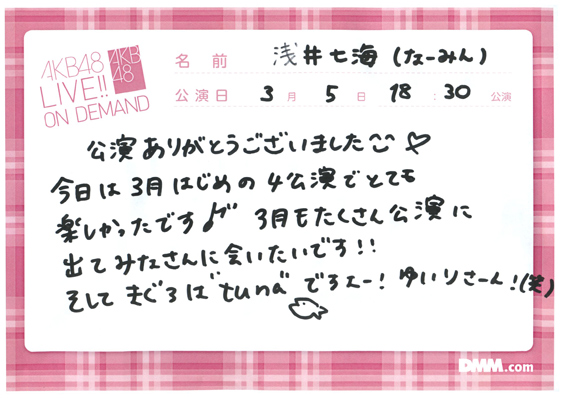 AKB48
LIVE!!
ON DEMAND
AKB
48
名前 浅井七海（なーみん）
公演日 3月 5日 18:30 公演
公演ありがとうございました
今日は3月はじめの4公演でとても
楽しかったです♪ 3月もたくさん公演に
出てみなさんに会いたいです!!
そしてまぐろは"tuna"ですよー! ゆいりさーん!(笑)
DMM.com